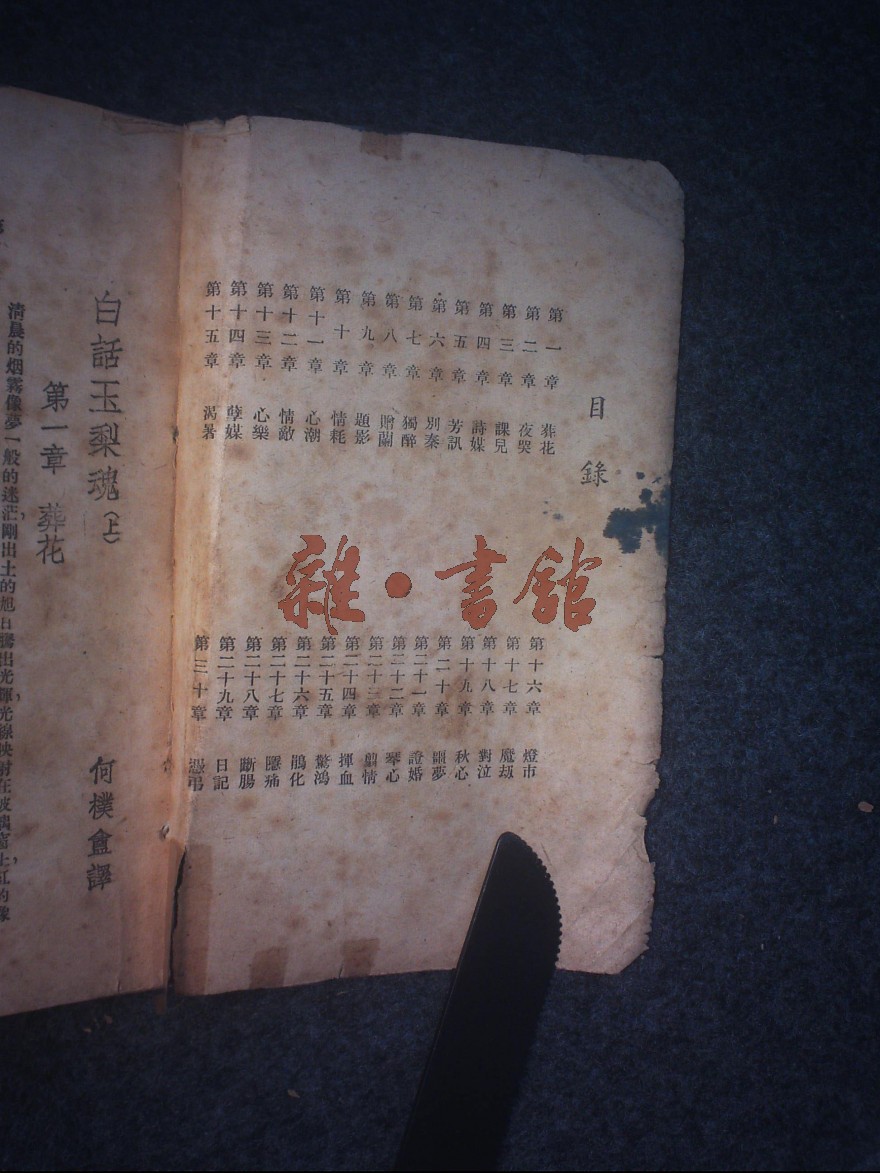 目錄
第一章 葬花
第二章 夜哭
第三章 課兒
第四章 詩媒
第五章 芳訊
第六章 別秦
第七章 獨醉
第八章 贈蘭
第九章 題影
第十章 情耗
第十一章 心潮
第十二章 情敵
第十三章 心樂
第十四章 孽媒
第十五章 渴暑
第十六章 燈市
第十七章 魔劫
第十八章 對泣
第十九章 秋心
第二十章 噩夢
第二十一章 證婚
第二十二章 琴心
第二十三章 剪情
第二十四章 揮血
第二十五章 驚鴻
第二十六章 鵑化
第二十七章 隱痛
第二十八章 斷腸
第二十九章 日記
第三十章 憑弔
雜·書館
白話玉梨魂(上) 何樸盦譯
第一章 葬花
清晨的烟霧像夢一般的迷茫,剛出土的旭日騰出光輝,光線映射在玻璃窗上,紅的像